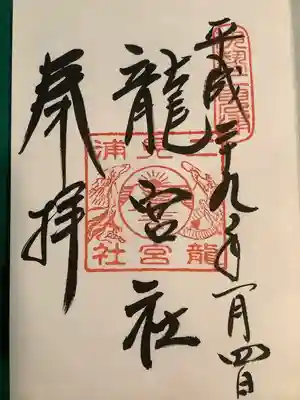 平成二十九年一月四日
龍宮社
奉拝
二見浦
龍宮社